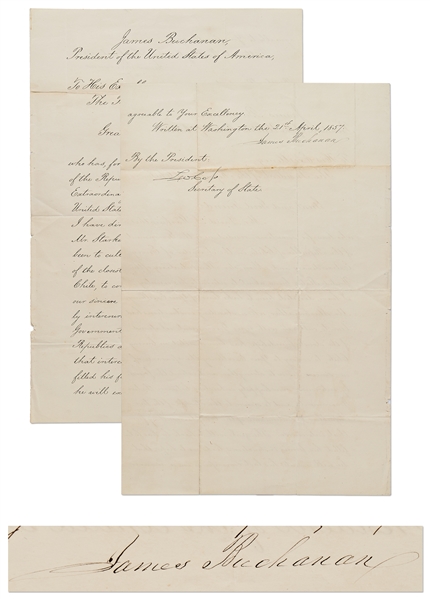 James Buchanan,
President of the United States of America,
To His Ex
The
Grea
who has, for
of the Repu
Extraordina
United Stat
I have de
Mr. Starkw
been to cult
of the closest
Chile, to co
our sincere
by intercour
Government
Republics a
that interes
filled his f
he will co
agreable to Your Excellency.
Written at Washington the 21st April, 1857.
James Buchanan
By the President.
Lew Cass
Secretary of State
James Buchanan